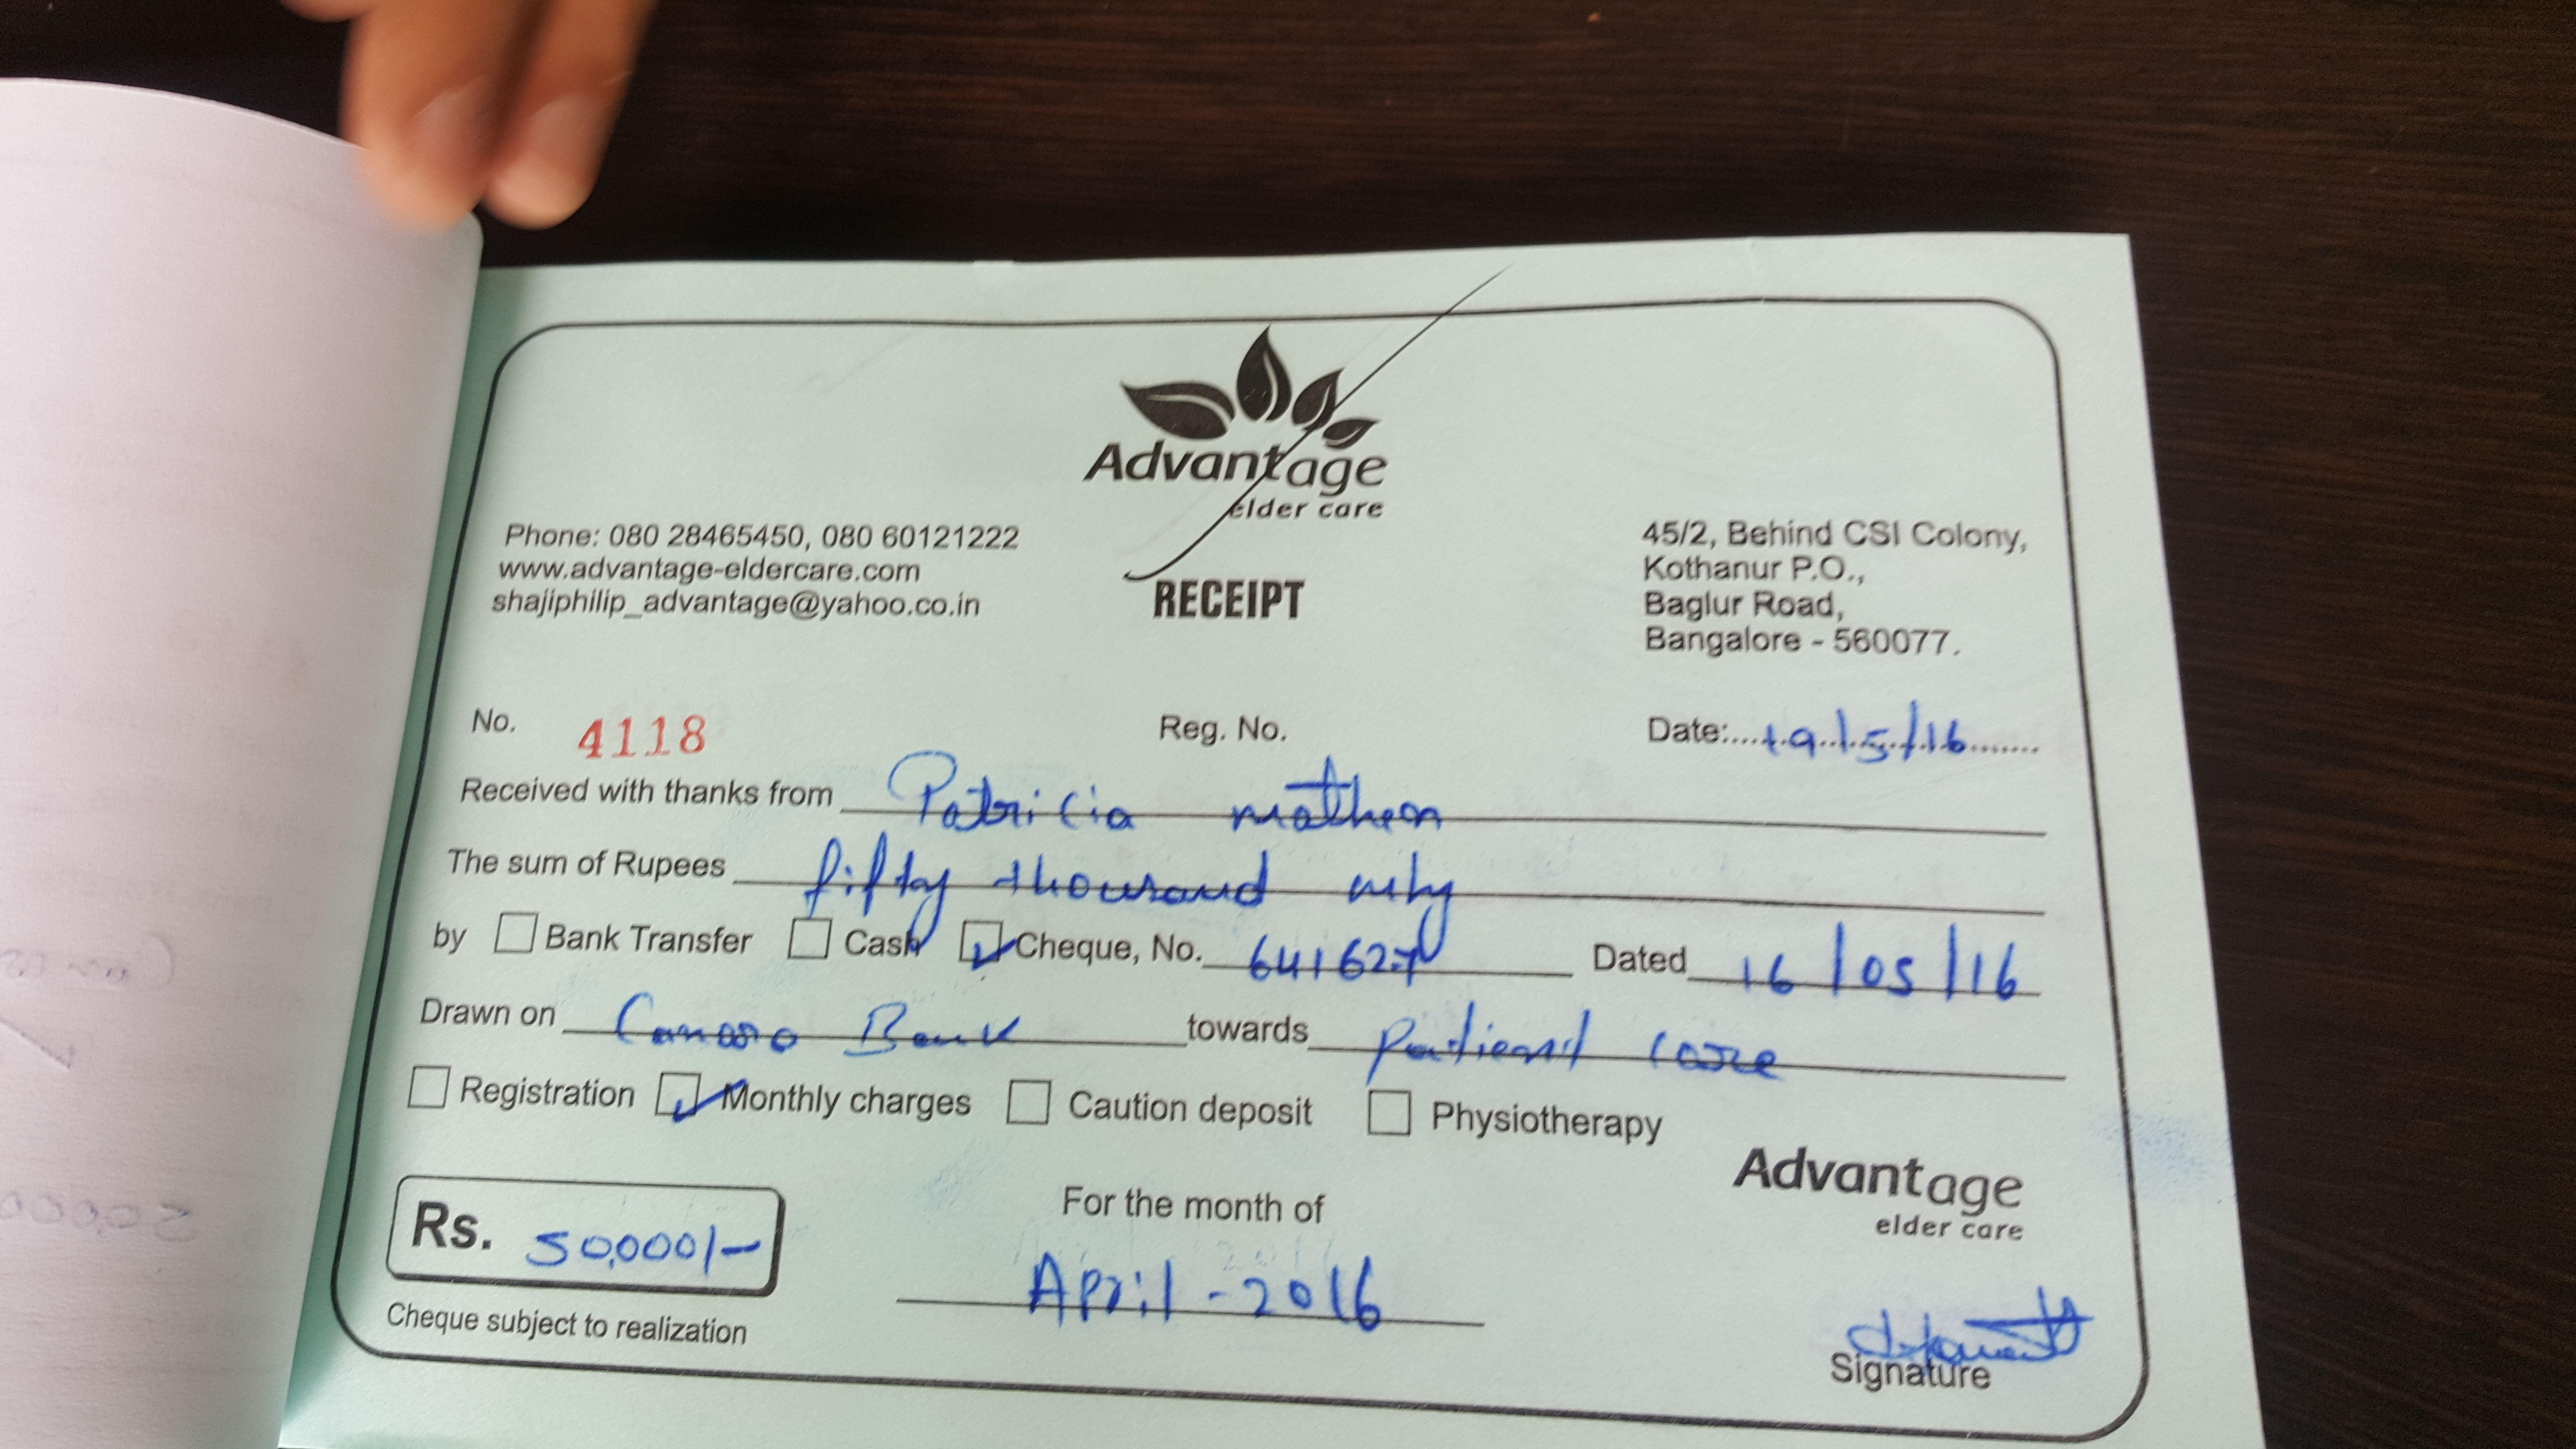 Advantage
elder care
Phone: 080 28465450, 080 60121222
www.advantage-eldercare.com
shajiphilip_advantage@yahoo.co.in
RECEIPT
45/2, Behind CSI Colony,
Kothanur P.O.,
Baglur Road,
Bangalore - 560077.
No. 4118 Reg. No. Date: 19/5/16
Received with thanks from Patricia mathen
The sum of Rupees fifty thousand only
by Bank Transfer Cash Cheque, No. 641627 Dated 16/05/16
Drawn on Canara Bank towards Patient care
Registration Monthly charges Caution deposit Physiotherapy
Rs. 50,000/-
For the month of
April - 2016
Advantage
elder care
Cheque subject to realization
Signature